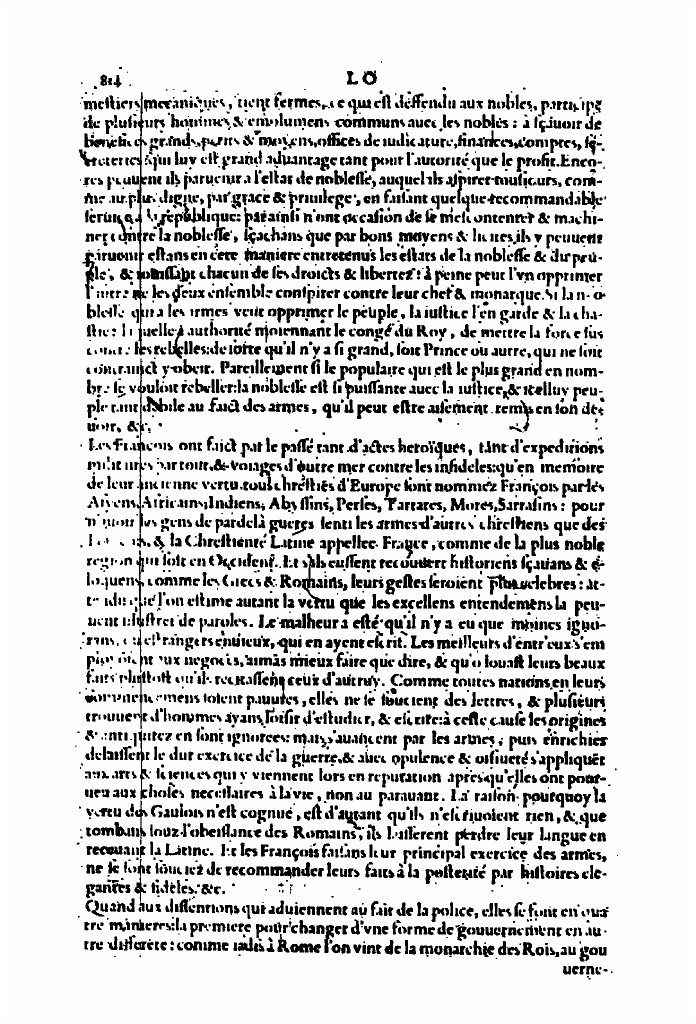 814 LO
mestiers mecaniques, tient fermes, ce qui est deffendu aux nobles, participe
de plusieurs hommes, & emolumens communs auec les nobles : à sçauoir de
benefices grands, petits & moyens, offices de iudicature, finances, comptes, se-
creteries: qui luy est grand aduantage tant pour l'autorité que le profit. Enco-
res peuuent ils paruenir a l'estat de noblesse, auquel ils aspirer plusieurs, com-
me au plus digne, par grace & priuilege, en faisant quelque recommandable
seruice à la republique: par ainsi n'ont occasion de se mescontenter & machi-
ner contre la noblesse, sçachans que par bons moyens & licites, ils y peuuent
paruenir estans en cete maniere entretenus les estats de la noblesse & du peu-
ple, & iouissant chacun de ses droicts & libertez: à peine peut l'vn opprimer
l'autre ne les deux ensemble conspirer contre leur chef & monarque. Si la no-
blesse qui a les armes veut opprimer le peuple, la iustice l'en garde & la cha-
stie: laquelle à authorité moiennant le congé du Roy, de mettre la force sus
contre les rebelles: de sorte qu'il n'y a si grand, soit Prince ou autre, qui ne soit
contrainct y obeir. Pareillement si le populaire qui est le plus grand en nom-
bre se vouloit rebeller: la noblesse est si puissante auec la iustice, & icelluy peu-
ple tant debile au faict des armes, qu'il peut estre aisement remis en son de-
uoir, &c.
Les François ont faict par le passé tant d'actes heroïques, tant d'expeditions
militaires par tour, & voiages d'outre mer contre les infideles: qu'en memoire
de leur ancienne vertu tous chrestiés d'Europe sont nommez François par les
Aryens, Africains, Indiens, Abyssins, Perses, Tartares, Mores, Sarrasins : pour
n'auoir les gens de pardelà gueres senti les armes d'autres chrestiens que des
François, & la Chrestienté Latine appellee France, comme de la plus noble
region qui soit en Occident. Et s'ils eussent recouuert historiens sçauans & é-
loquens, comme les Grecs & Romains, leurs gestes seroient plus celebres : at-
tendu que l'on estime autant la vertu que les excellens entendemens la peu-
uent illustrer de paroles. Le malheur a esté qu'il n'y a eu que moines igno-
rans, ou estrangers enuieux, qui en ayent escrit. Les meilleurs d'entr'eux s'em
ploioient aux negoces, aimás mieux faire que dire, & qu'ó louast leurs beaux
faits plustost qu'ils recitassent ceux d'autruy. Comme toutes nations en leurs
commencemens soient pauures, elles ne se soucient des lettres, & plusieurs
trouuent d'hommes ayans loisir d'estudier, & escrire: à ceste cause les origines
& antiquitez en sont ignorees: mais s'auancent par les armes, puis enrichies
delaissent le dur exercice de la guerre, & auec opulence & oisiueté s'appliquêt
aux arts & sciences qui y viennent lors en reputation apres qu'elles ont pour-
ueu aux choses necessaires à la vie, non au parauant. La raison pourquoy la
vertu des Gaulois n'est cognuë, est d'autant qu'ils n'escriuoient rien, & que
tombans souz l'obeissance des Romains, ils laisserent perdre leur langue en
receuant la Latine. Et les François faisans leur principal exercice des armes,
ne se sont souciez de recommander leurs faits à la posterité par histoires ele-
gantes & fideles. &c.
Quand aux dissentions qui aduiennent au fait de la police, elles se font en qua
tre manieres: la premiere pour changer d'vne forme de gouuernement en au-
tre differéte : comme iadis à Rome l'on vint de la monarchie des Rois, au gou
uerne-